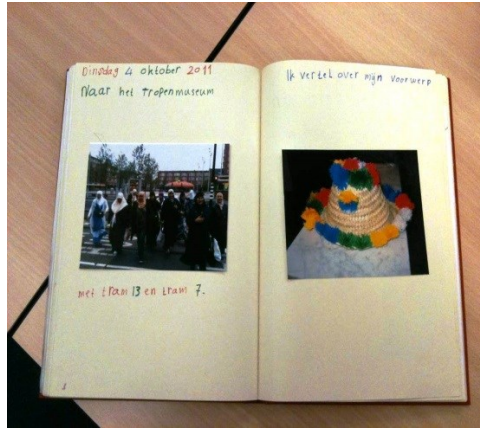 Dinsdag 4 oktober 2011
Naar het Tropenmuseum
met tram 13 en tram 7.
Ik vertel over mijn voorwerp